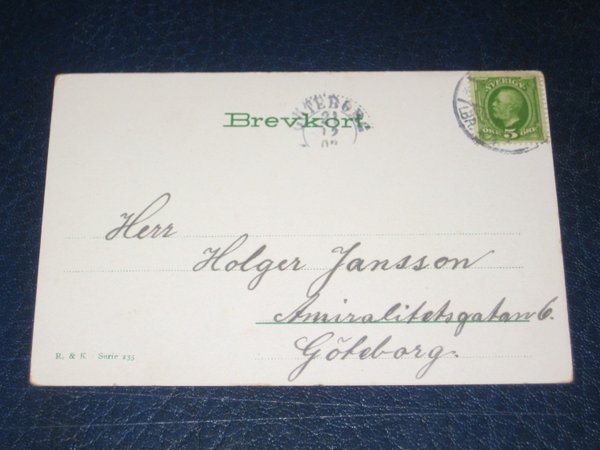 Brevkort
GÖTEBORG
21
12
SVERIGE
ÖRE 5 ÖRE
Herr
Holger Jansson
Amiralitetsgatan 6.
Göteborg.
R. & K. Serie 235